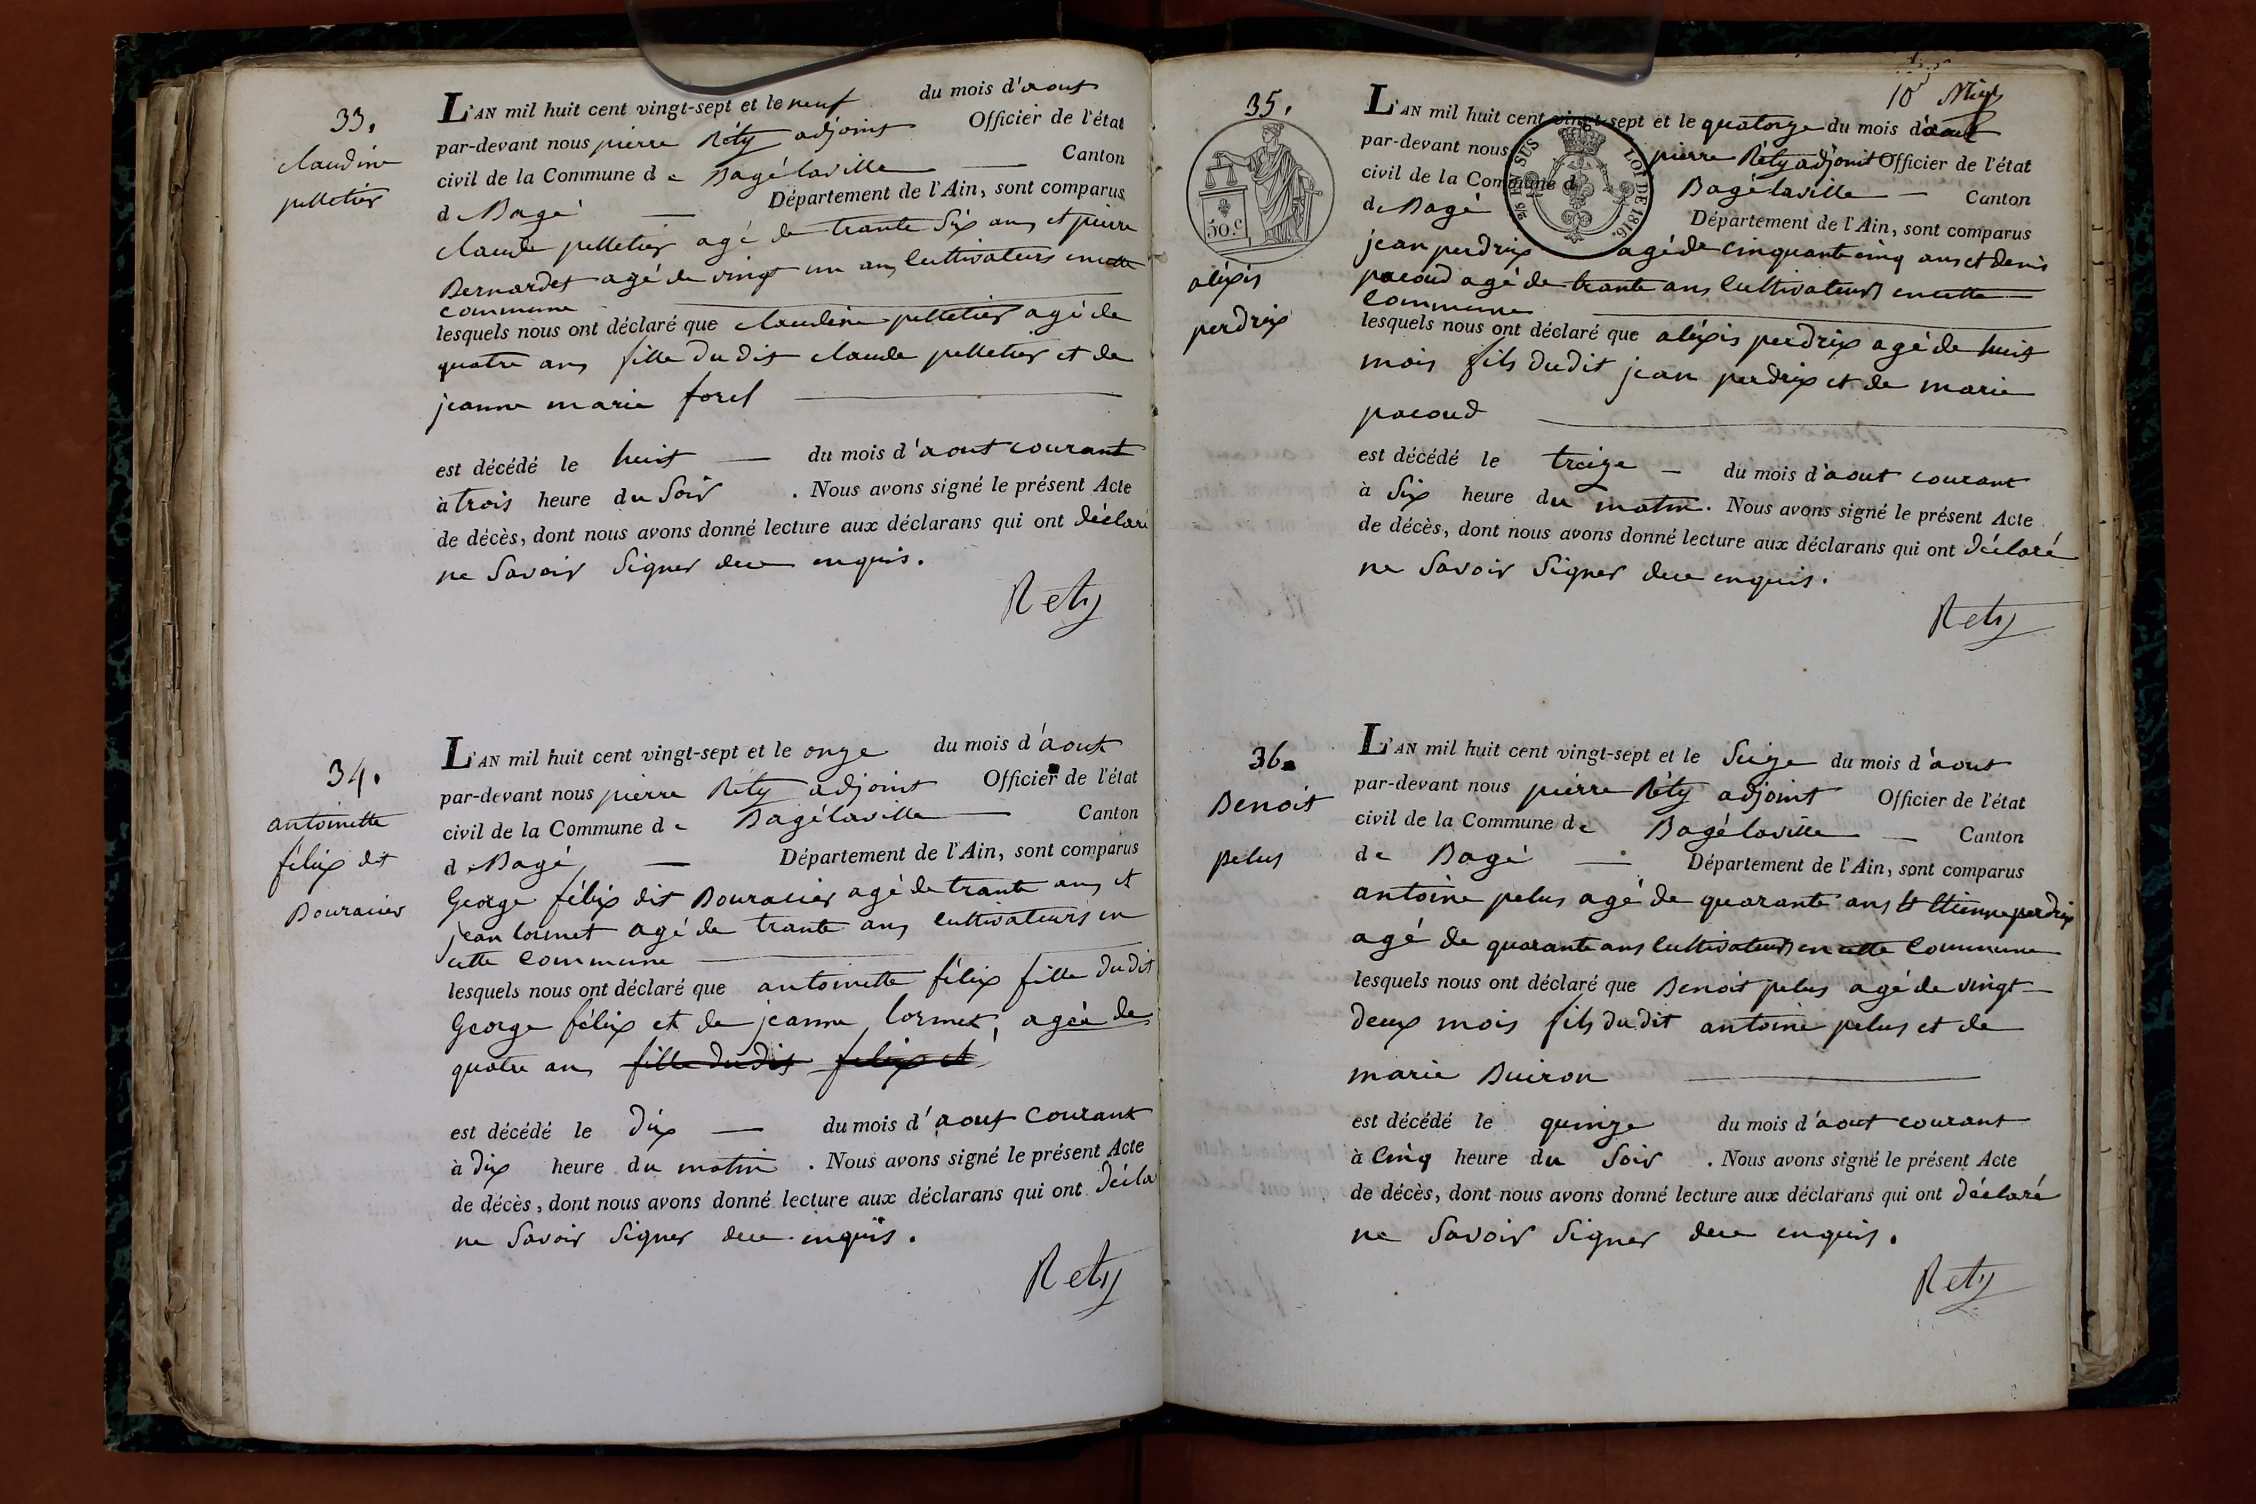 33.
claudine
pelletier
L'AN mil huit cent vingt-sept et le neuf du mois d'aout
par-devant nous pierre Réty adjoint Officier de l'état
civil de la Commune de Bagélaville Canton
de Bagé Département de l'Ain, sont comparus
claude pelletier agé de trante Six ans et pierre
Bernardet agé de vingt un ans Cultivateurs en cette
commune
lesquels nous ont déclaré que claudine pelletier agé de
quatre ans fille du dit claude pelletier et de
jeanne marie forel
est décédé le huit du mois d'aout courant
à trois heure du Soir . Nous avons signé le présent Acte
de décès, dont nous avons donné lecture aux déclarans qui ont déclaré
ne Savoir Signer deue enquis.
Rety
34.
antoinette
félix dit
Bouracier
L'AN mil huit cent vingt-sept et le onze du mois d'aout
par-devant nous pierre Réty adjoint Officier de l'état
civil de la Commune de Bagélaville Canton
de Bagé Département de l'Ain, sont comparus
George félix dit Bouracier agé de trante ans et
jean lormet agé de trante ans Cultivateurs en
cette commune
lesquels nous ont déclaré que antoinette félix fille du dit
George félix et de jeanne lormet, agée de
quatre ans fille du dit felix et
est décédé le dix du mois d'aout Courant
à dix heure du matin . Nous avons signé le présent Acte
de décès, dont nous avons donné lecture aux déclarans qui ont décla
ne Savoir Signer deue enquis.
Rety
35.
50.c
aléxis
perdrix
L'AN mil huit cent vingt-sept et le quatorze du mois d'aout
par-devant nous pierre Réty adjoint Officier de l'état
civil de la Commune de Bagélaville Canton
de Bagé Département de l'Ain, sont comparus
EN SUS
LOI DE 1816.
jean perdrix agé de Cinquante cinq ans et denis
pacoud agé de trante ans Cultivateurs en cette
Commune
lesquels nous ont déclaré que aléxis perdrix agé de huit
mois fils du dit jean perdrix et de marie
pacoud
est décédé le treize du mois d'aout courant
à Six heure du matin. Nous avons signé le présent Acte
de décès, dont nous avons donné lecture aux déclarans qui ont déclaré
ne Savoir Signer deue enquis.
Rety
36.
Benoit
pelus
L'AN mil huit cent vingt-sept et le Seize du mois d'aout
par-devant nous pierre Réty adjoint Officier de l'état
civil de la Commune de Bagélaville Canton
de Bagé Département de l'Ain, sont comparus
antoine pelus agé de quarante ans et Etienne perdrix
agé de quarante ans Cultivateurs en cette Commune
lesquels nous ont déclaré que Benoit pelus agé de vingt
deux mois fils du dit antoine pelus et de
marie Buiron
est décédé le quinze du mois d'aout courant
à Cinq heure du Soir . Nous avons signé le présent Acte
de décès, dont nous avons donné lecture aux déclarans qui ont déclaré
ne Savoir Signer deue enquis.
Rety